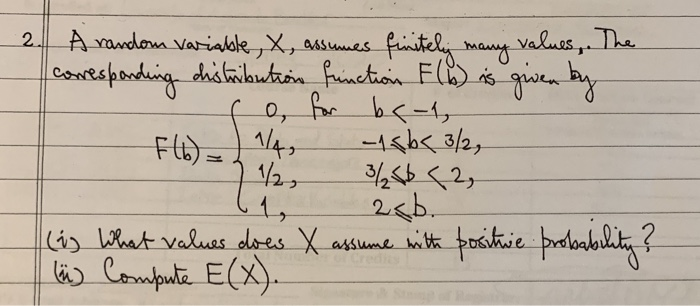 2. A random variable, X, assumes finitely many values,. The
corresponding distribution function F(b) is given by
F(b) = { 0, for b < -1,
1/4, -1 ≤ b < 3/2,
1/2, 3/2 ≤ b < 2,
1, 2 ≤ b.
(i) What values does X assume with positive probability?
(ii) Compute E(X).